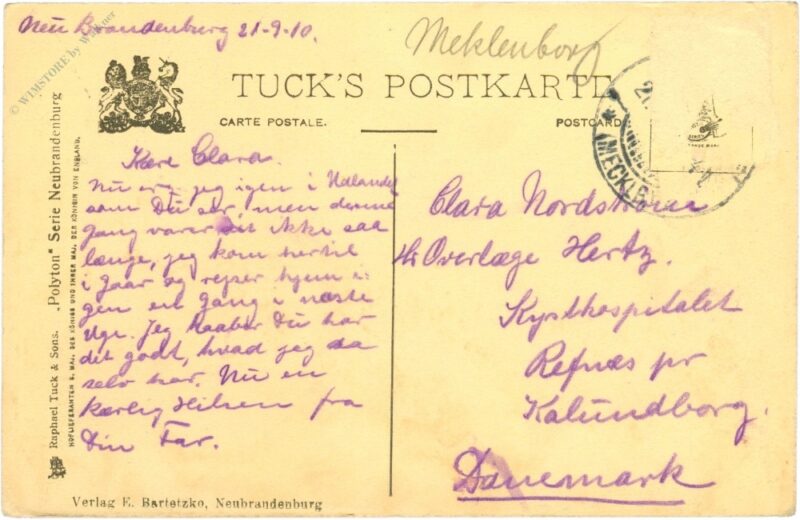 Neu Brandenburg 21-9-10.
Meklenborg
© WIMSTORE by Winkner
TUCK'S POSTKARTE
CARTE POSTALE.
POSTCARD
(MECKLB
Kære Clara.
Nu er jeg igen i Udlandet
som Du ser, men denne
Gang varer det ikke saa
længe, jeg kom hertil
i Gaar og rejser hjem i-
gen en Gang i næste
Uge. Jeg haaber Du har
det godt, hvad jeg da
selv har. Nu en
kærlig Hilsen fra
Din Far.
Clara Nordstrøm
Hr Overlæge Hertz.
Kysthospitalet
Refnæs pr
Kalundborg.
Danemark
Raphael Tuck & Sons. „Polyton" Serie Neubrandenburg
HOFLIEFERANTEN S. MAJ. DES KÖNIGS UND IHRER MAJ. DER KÖNIGIN VON ENGLAND.
Verlag E. Bartetzko, Neubrandenburg